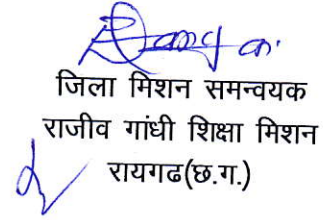 जिला मिशन समन्वयक
राजीव गांधी शिक्षा मिशन
रायगढ(छ.ग.)